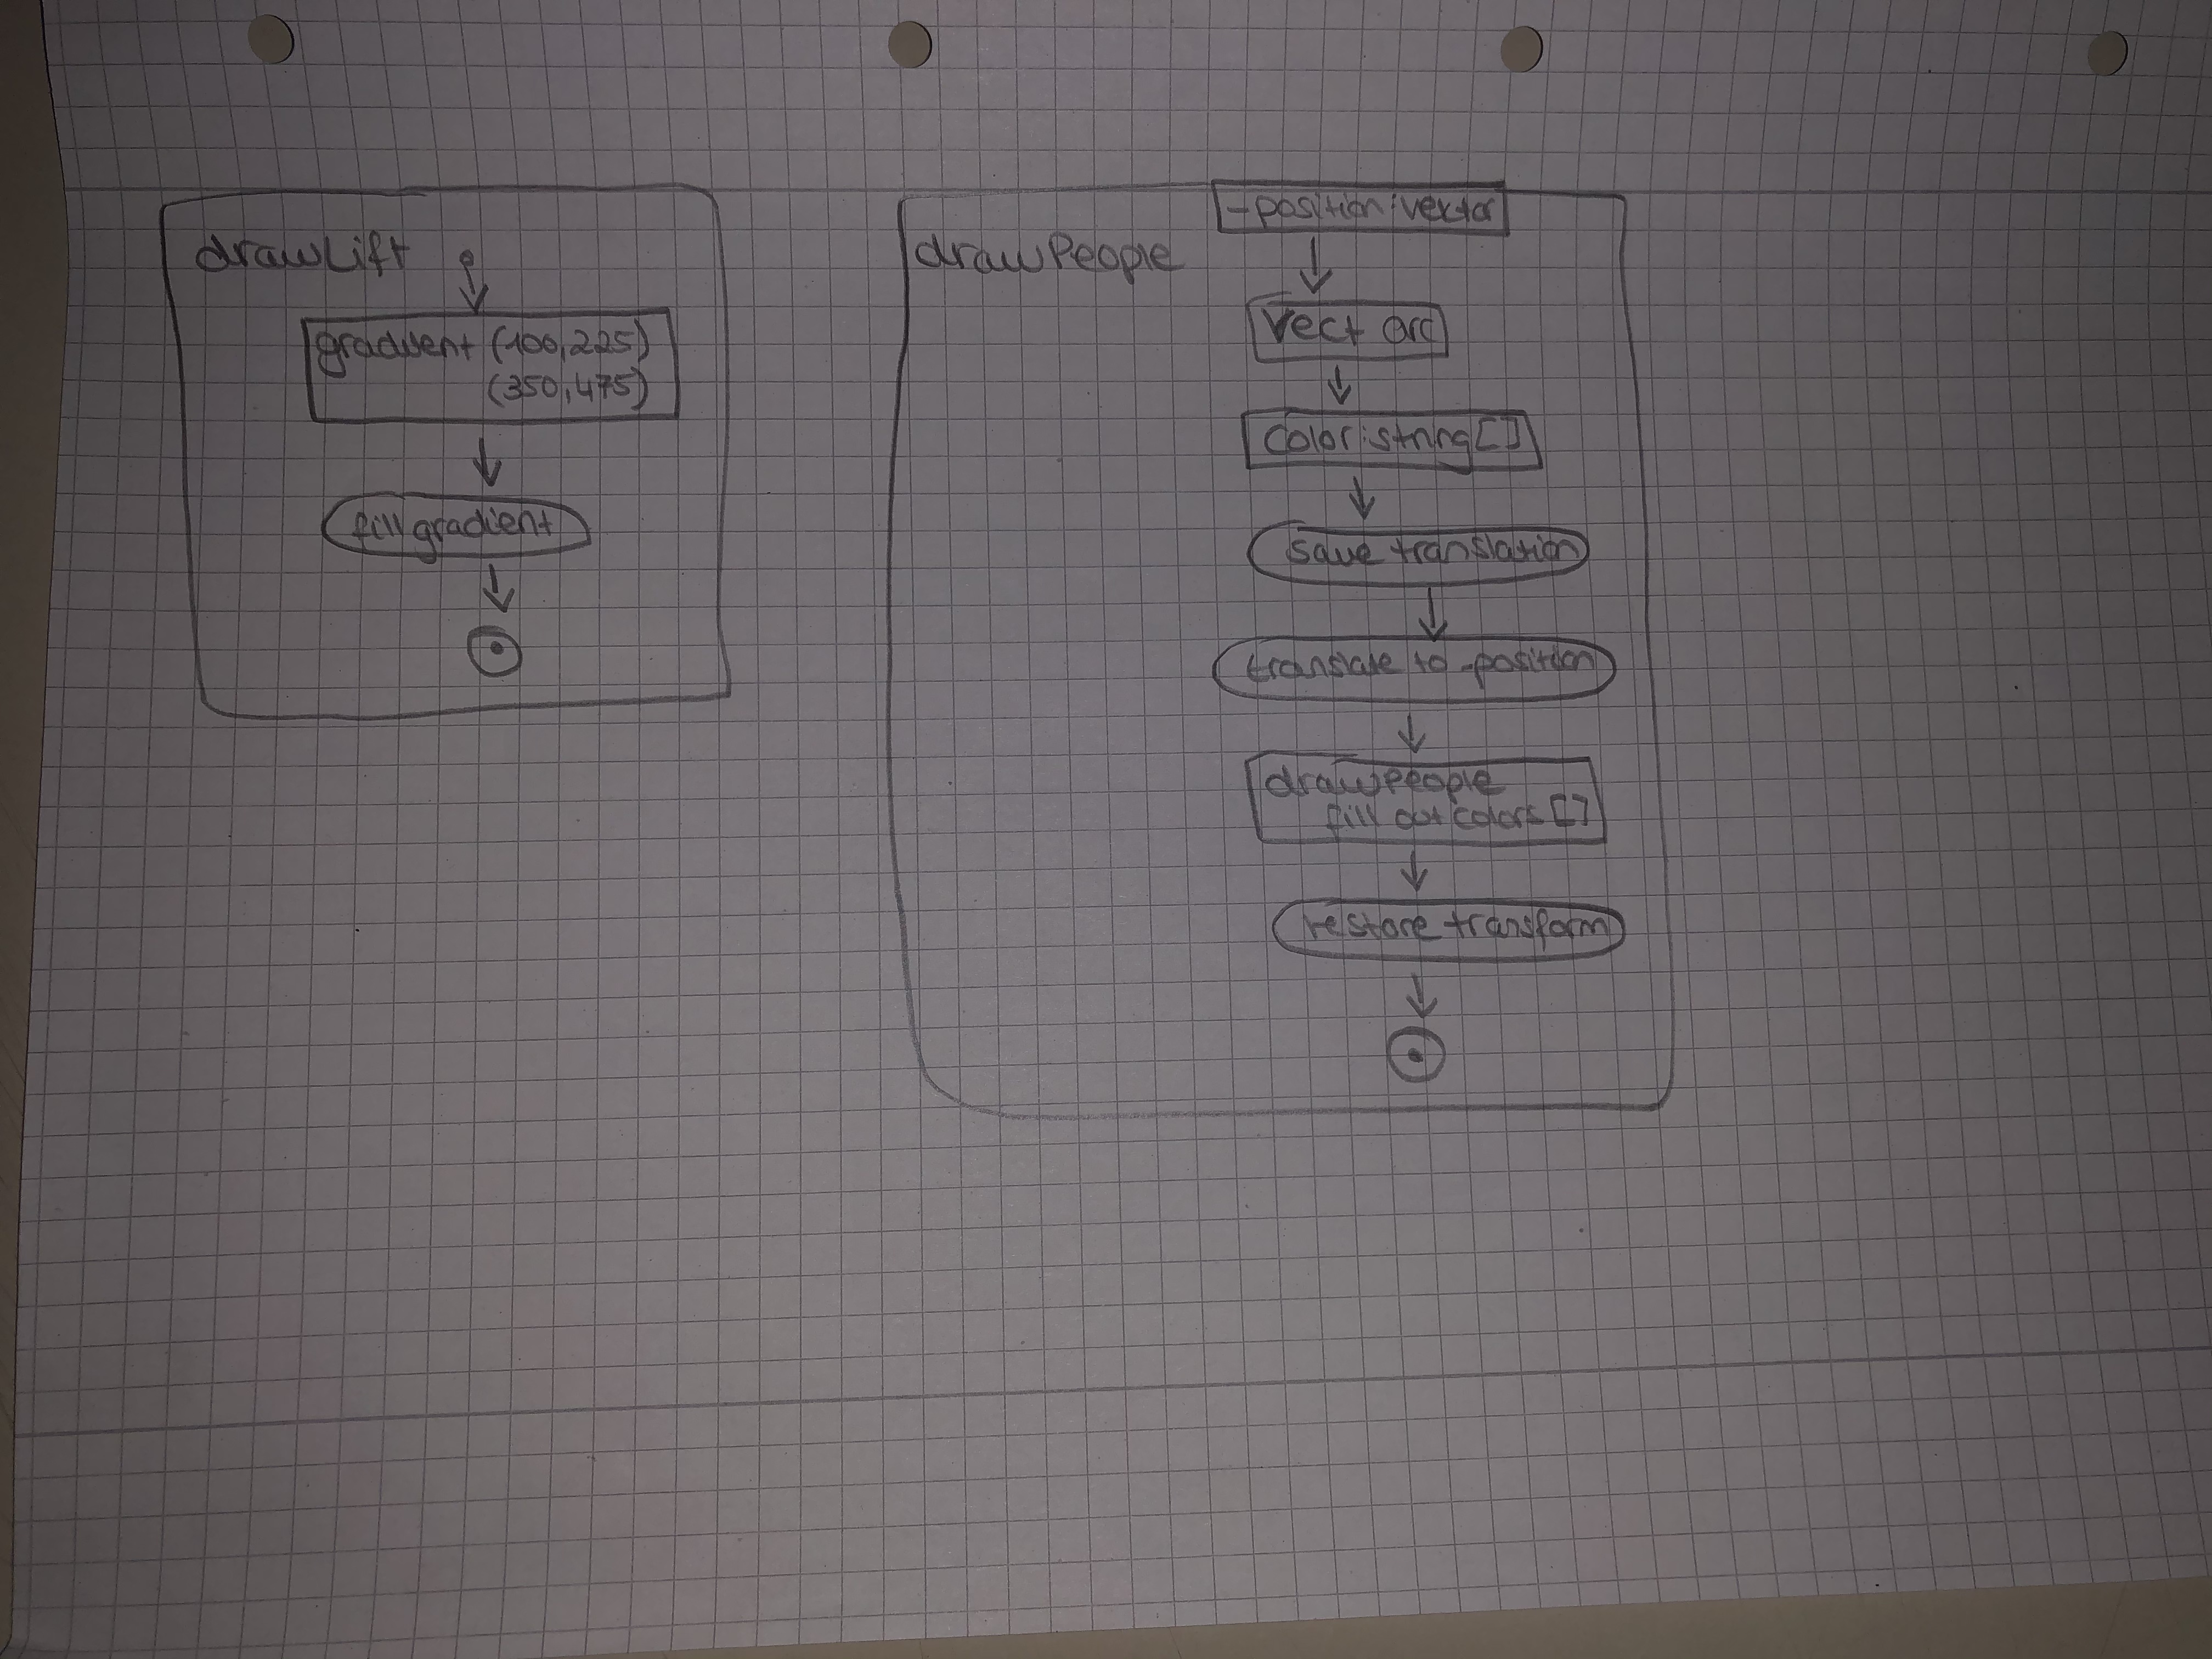 drawLift
gradient (100,225)
(350,475)
fill gradient
drawPeople
-position: vector
Vect arc
Color: string[]
save translation
translate to -position
drawPeople
fill out colors []
restore transform